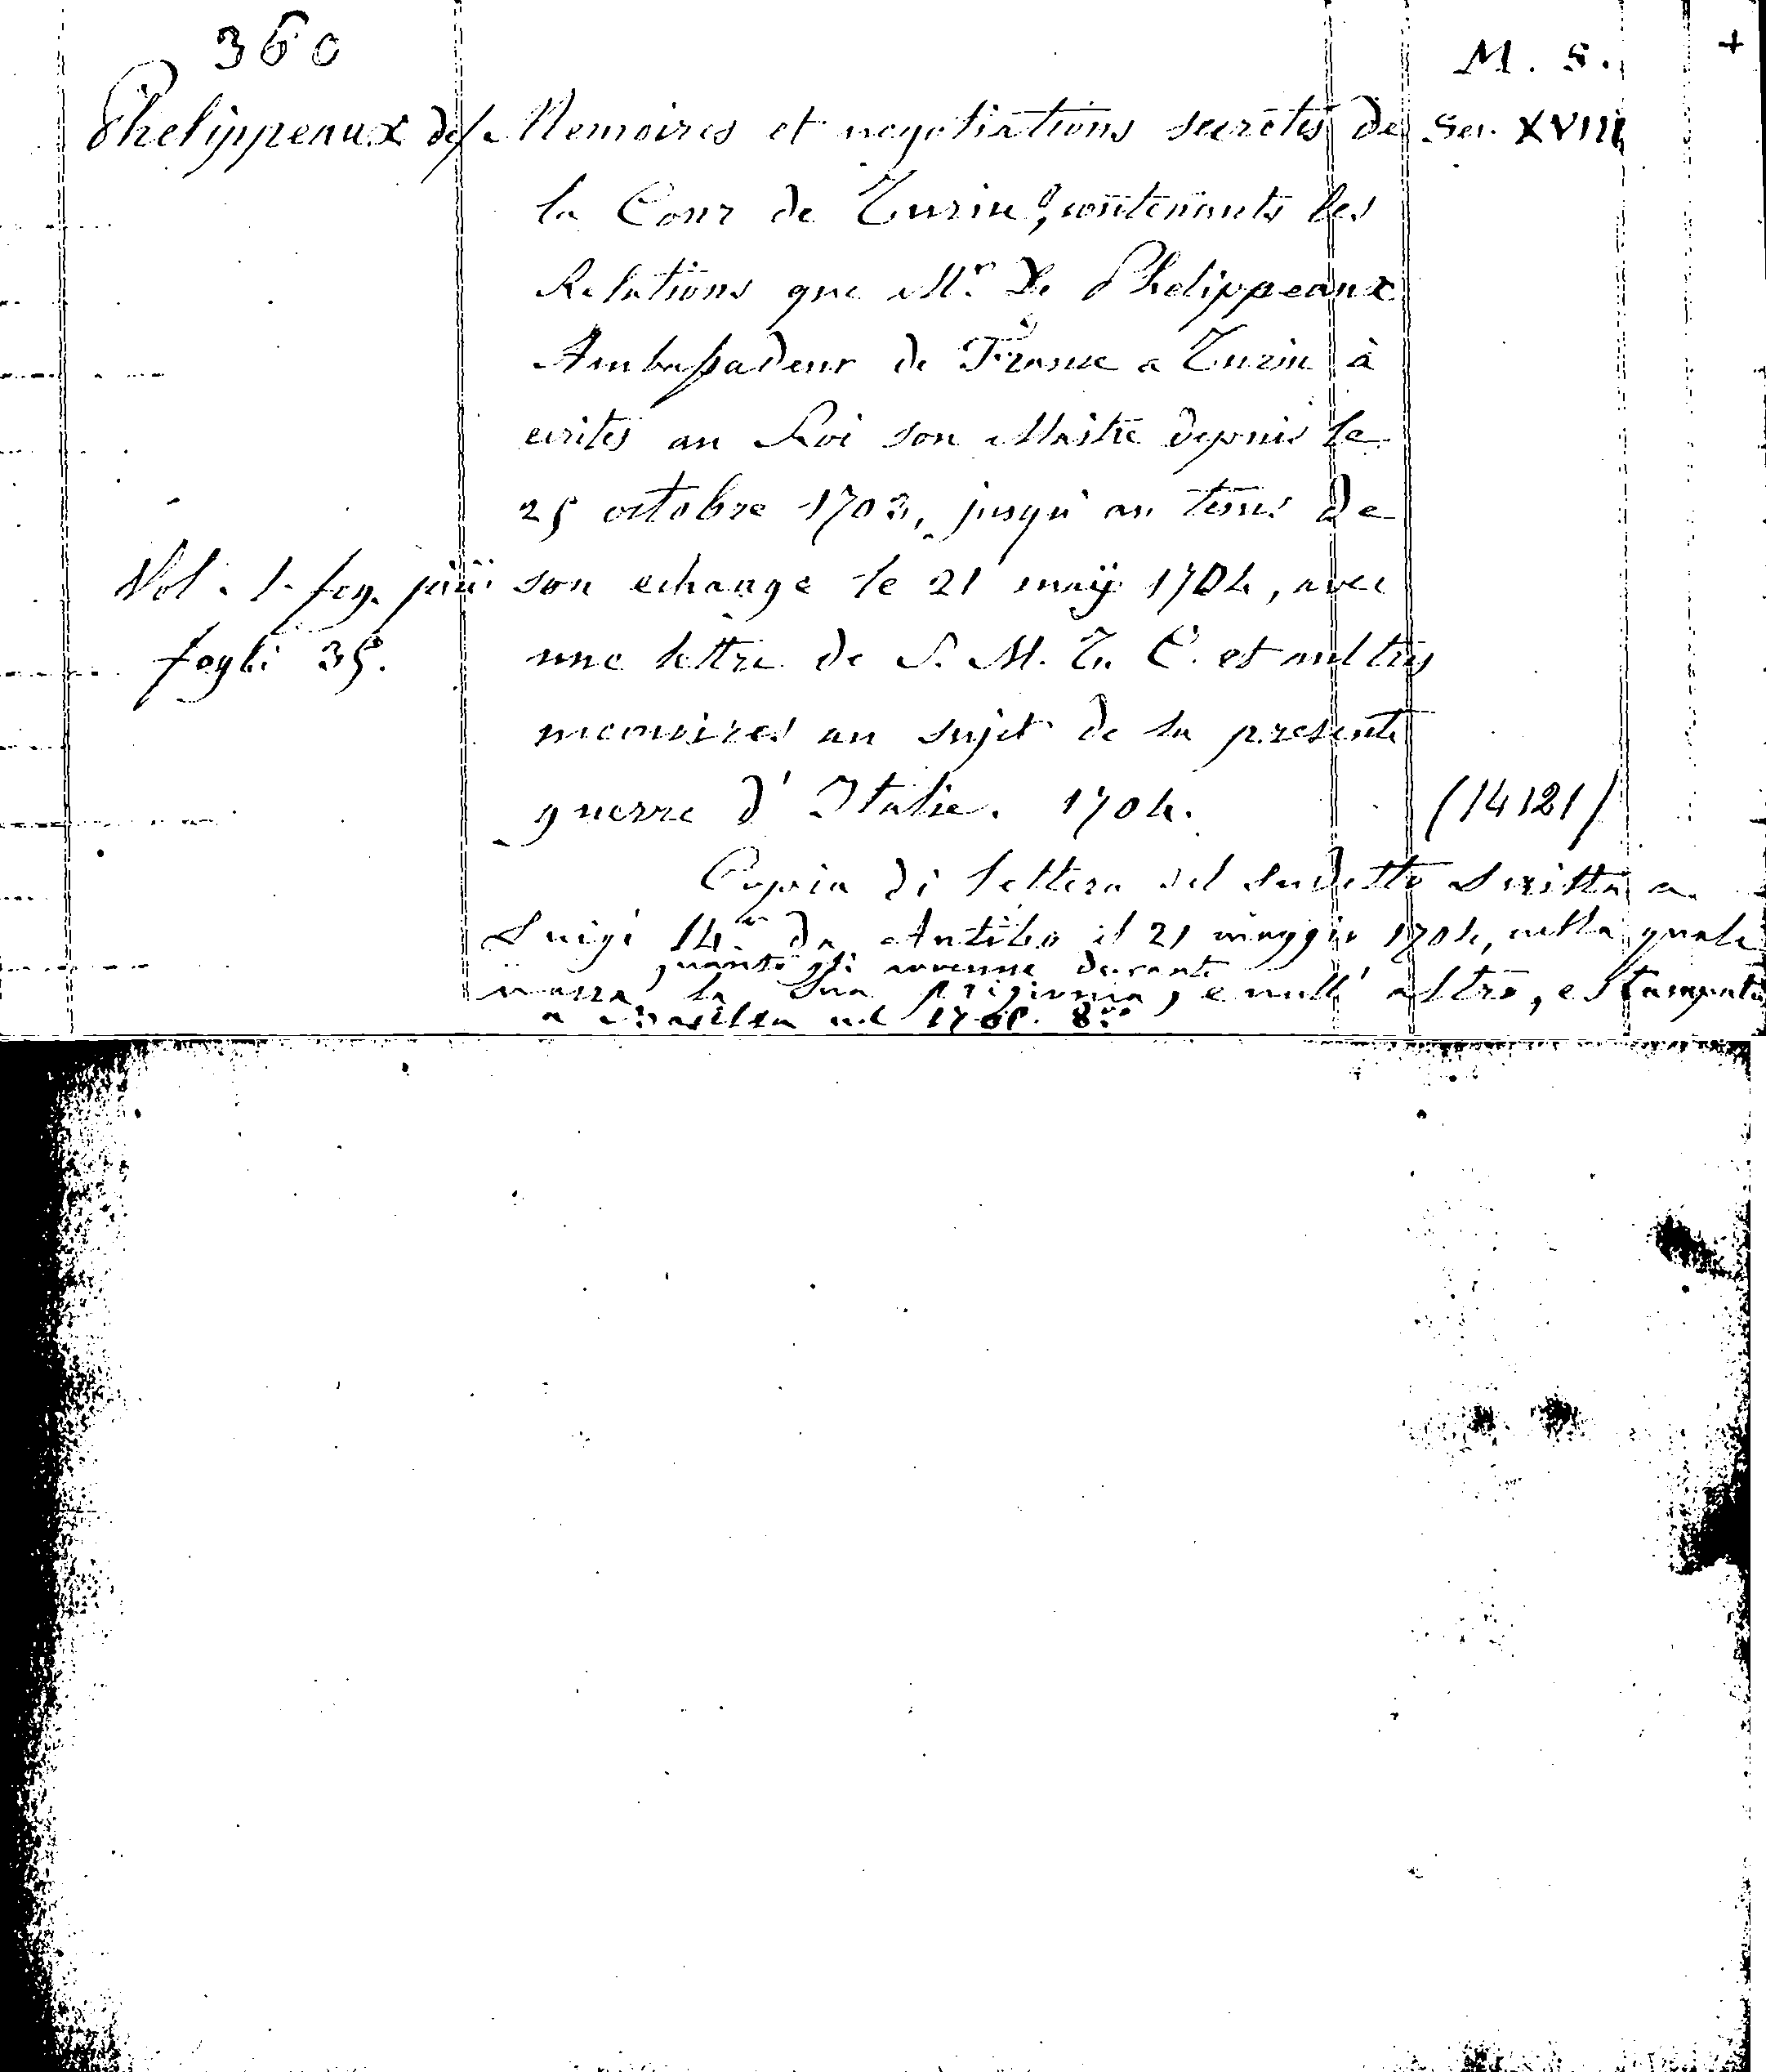 360 M. S. +
Phelippeaux de/. Memoires et negotiations secretes de Sec. XVIII
la Cour de Turin, contenants les
Relations que Mr. De Phelippeaux
Ambassadeur de France a Turin à
ecrites au Roi son Maitre depuis le
25 octobre 1703, jusqu' au tems de
Vol. 1. fog. più son echange le 21 maÿ 1704, avec
fogli 35. une lettre de S. M. T. C. et aultres
memoires au sujet de la presente
guerre d' Italie. 1704. (14121)
Copia di lettera del sudetto scritta a
Luigi 14.° da Antibo il 21 maggio 1704, nella quale
quanto gli avvenne durante
narra la sua prigionia, e null' altro, e stampata
a Basilea nel 8.vo